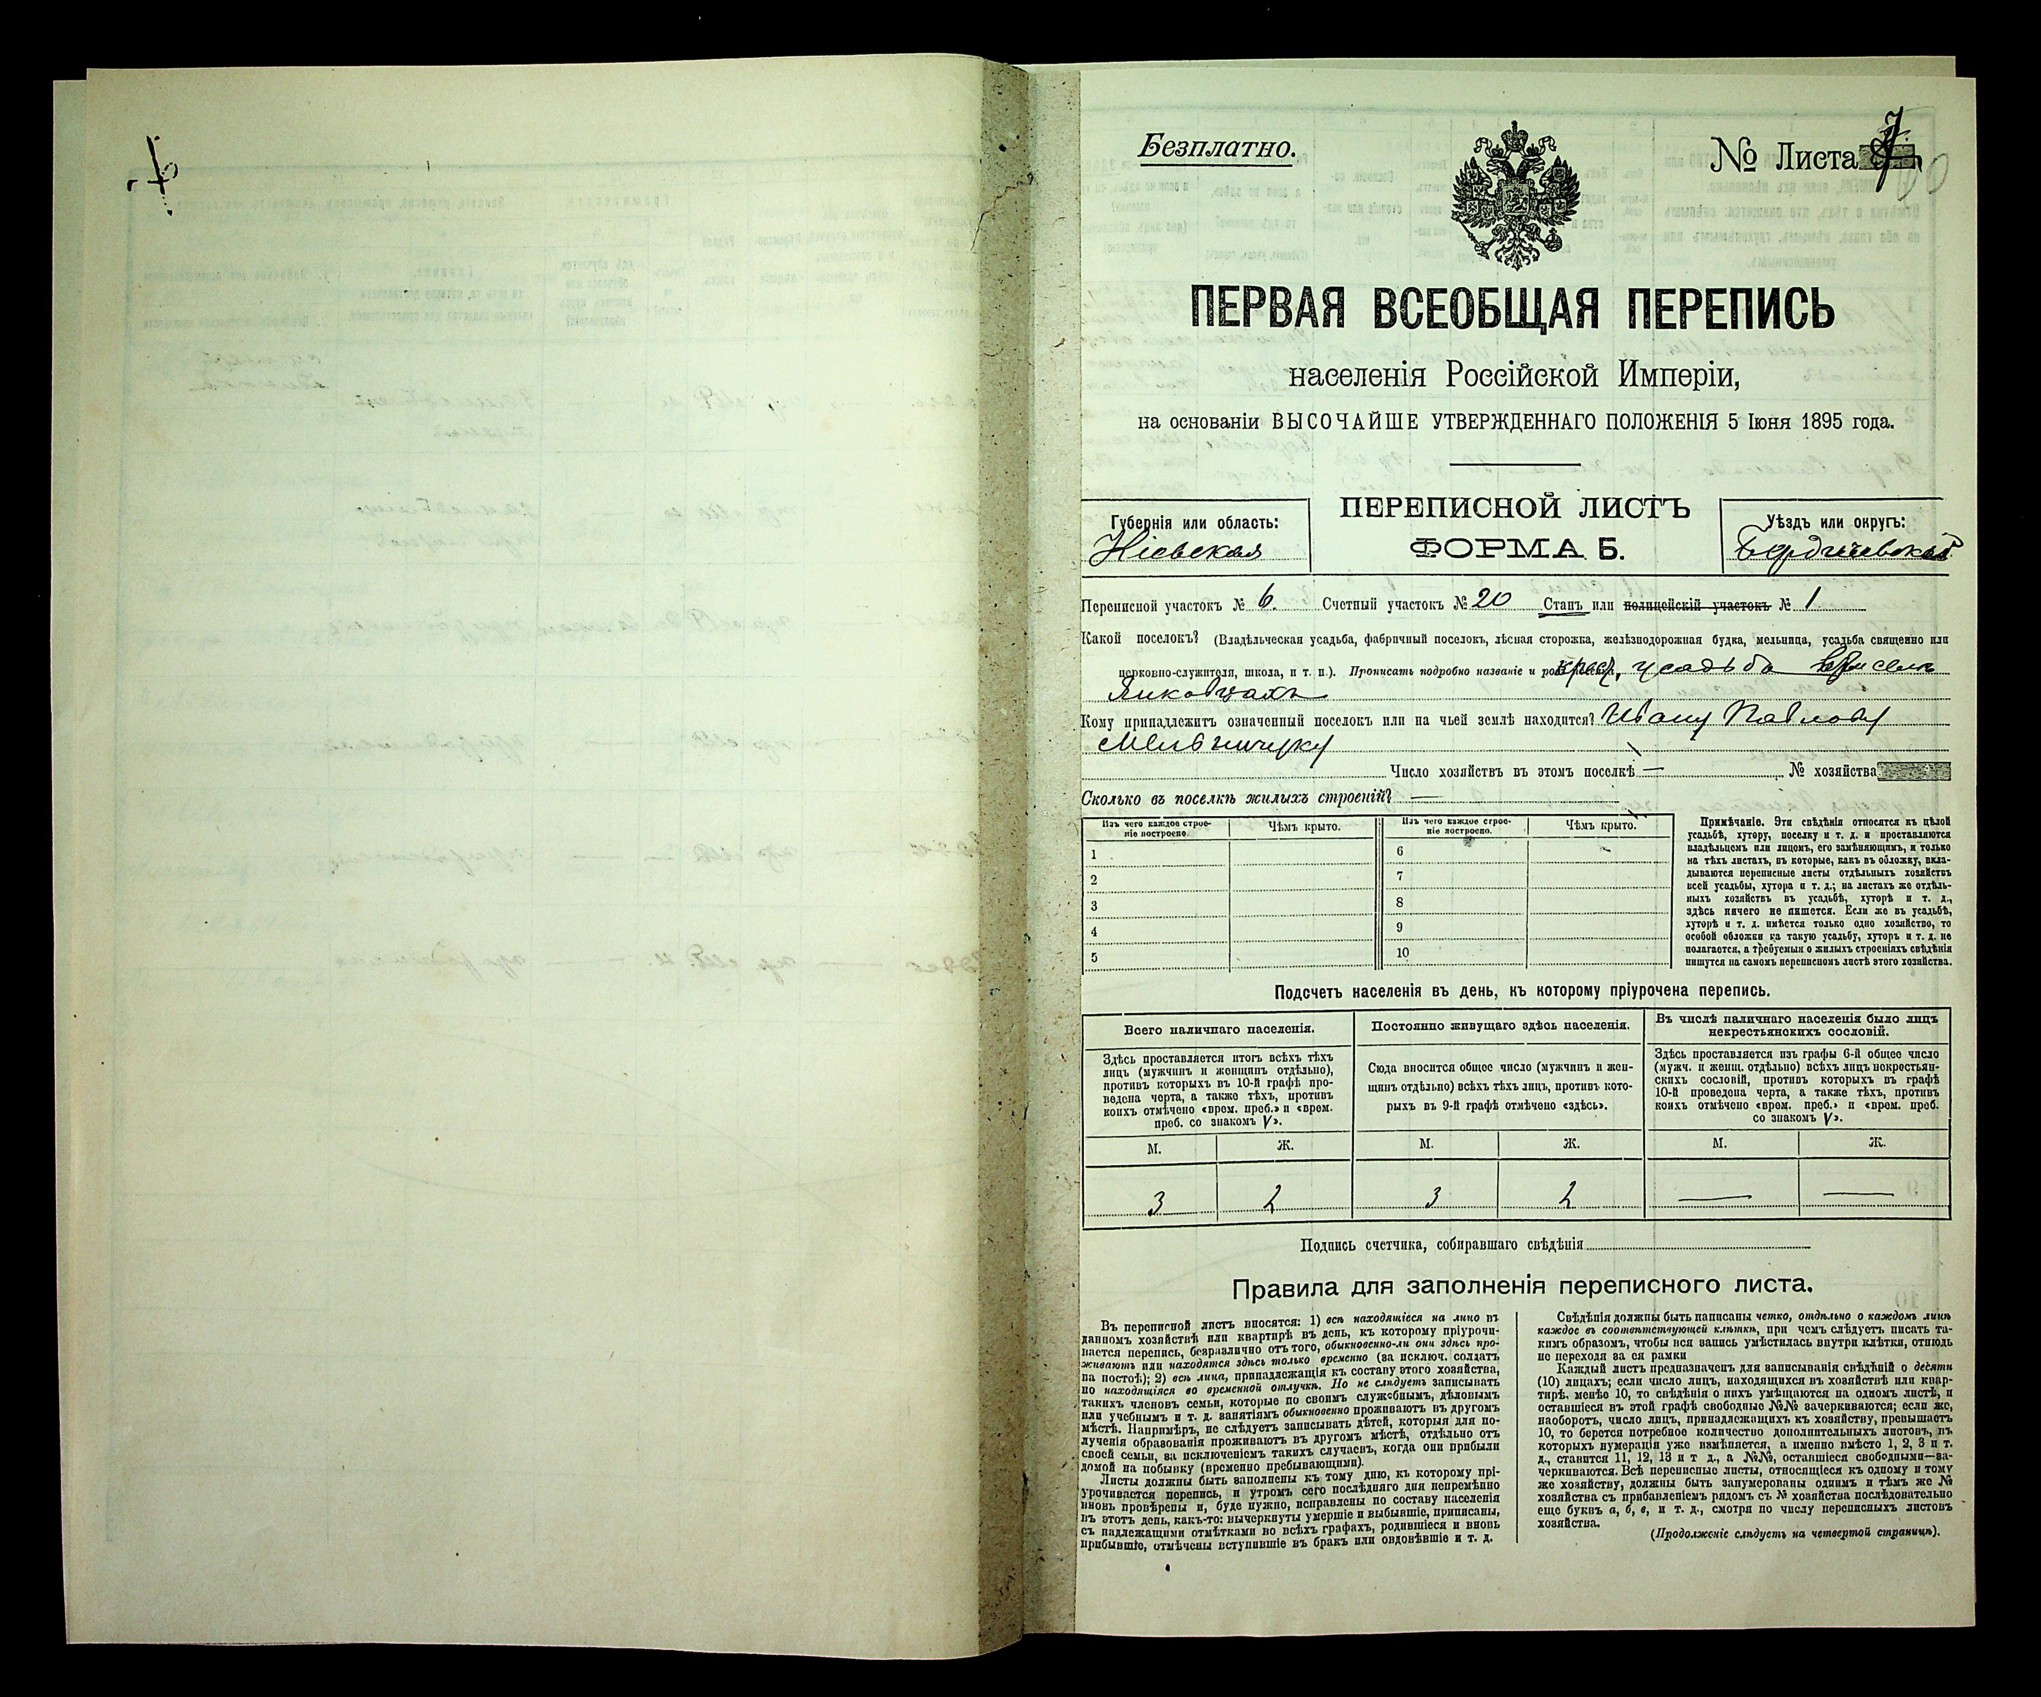 Безплатно.
№ Листа 7
ПЕРВАЯ ВСЕОБЩАЯ ПЕРЕПИСЬ
населенія Россійской Имперіи,
на основаніи ВЫСОЧАЙШЕ УТВЕРЖДЕННАГО ПОЛОЖЕНІЯ 5 Іюня 1895 года.
Губернія или область:
Кіевская
ПЕРЕПИСНОЙ ЛИСТЪ
ФОРМА Б.
Уѣздъ или округъ:
Бердичевскій
Переписной участокъ № 6. Счетный участокъ № 20 Станъ или полицейскій участокъ № 1
Какой поселокъ? (Владѣльческая усадьба, фабричный поселокъ, лѣсная сторожка, желѣзнодорожная будка, мельница, усадьба священно или
церковно-служителя, школа, и т. п.). Прописать подробно названіе и крест, усадьба селѣ
Пиковцахъ
Кому принадлежитъ означенный поселокъ или на чьей землѣ находится? Ивану Павлову
Мельничуку
Число хозяйствъ въ этомъ поселкѣ — № хозяйства
Сколько въ поселкѣ жилыхъ строеній? —
Изъ чего каждое строеніе построено. Чѣмъ крыто. Изъ чего каждое строеніе построено. Чѣмъ крыто.
1 6
2 7
3 8
4 9
5 10
Примѣчаніе. Эти свѣдѣнія относятся къ цѣлой
усадьбѣ, хутору, поселку и т. д. и проставляются
владѣльцемъ или лицомъ, его замѣняющимъ, и только
на тѣхъ листахъ, въ которые, какъ въ обложку, вкла-
дываются переписные листы отдѣльныхъ хозяйствъ
всей усадьбы, хутора и т. д.; на листахъ же отдѣль-
ныхъ хозяйствъ въ усадьбѣ, хуторѣ и т. д.,
здѣсь ничего не пишется. Если же въ усадьбѣ,
хуторѣ и т. д. имѣется только одно хозяйство, то
особой обложки на такую усадьбу, хуторъ и т. д. не
полагается, а требуемыя о жилыхъ строеніяхъ свѣдѣнія
пишутся на самомъ переписномъ листѣ этого хозяйства.
Подсчетъ населенія въ день, къ которому пріурочена перепись.
Всего наличнаго населенія.
Здѣсь проставляется итогъ всѣхъ тѣхъ
лицъ (мужчинъ и женщинъ отдѣльно),
противъ которыхъ въ 10-й графѣ про-
ведена черта, а также тѣхъ, противъ
коихъ отмѣчено «врем. преб.» и «врем.
преб. со знакомъ V».
М. Ж.
3 2
Постоянно живущаго здѣсь населенія.
Сюда вносится общее число (мужчинъ и жен-
щинъ отдѣльно) всѣхъ тѣхъ лицъ, противъ кото-
рыхъ въ 9-й графѣ отмѣчено «здѣсь».
М. Ж.
3 2
Въ числѣ наличнаго населенія было лицъ
некрестьянскихъ сословій.
Здѣсь проставляется изъ графы 6-й общее число
(мужч. и женщ. отдѣльно) всѣхъ лицъ некрестьян-
скихъ сословій, противъ которыхъ въ графѣ
10-й проведена черта, а также тѣхъ, противъ
коихъ отмѣчено «врем. преб.» и «врем. преб.
со знакомъ V».
М. Ж.
— —
Подпись счетчика, собиравшаго свѣдѣнія
Правила для заполненія переписного листа.
Въ переписной листъ вносятся: 1) всѣ находящіеся на лицо въ
данномъ хозяйствѣ или квартирѣ въ день, къ которому пріурочи-
вается перепись, безразлично отъ того, обыкновенно-ли они здѣсь про-
живаютъ или находятся здѣсь только временно (за исключ. солдатъ
на постоѣ); 2) всѣ лица, принадлежащія къ составу этого хозяйства,
но находящіяся во временной отлучкѣ. Но не слѣдуетъ записывать
такихъ членовъ семьи, которые по своимъ служебнымъ, дѣловымъ
или учебнымъ и т. д. занятіямъ обыкновенно проживаютъ въ другомъ
мѣстѣ. Напримѣръ, не слѣдуетъ записывать дѣтей, которыя для по-
лученія образованія проживаютъ въ другомъ мѣстѣ, отдѣльно отъ
своей семьи, за исключеніемъ такихъ случаевъ, когда они прибыли
домой на побывку (временно пребывающими).
Листы должны быть заполнены къ тому дню, къ которому прі-
урочивается перепись, и утромъ сего послѣдняго дня непремѣнно
вновь провѣрены и, буде нужно, исправлены по составу населенія
въ этотъ день, какъ-то: вычеркнуты умершіе и выбывшіе, приписаны,
съ надлежащими отмѣтками во всѣхъ графахъ, родившіеся и вновь
прибывшіе, отмѣчены вступившіе въ бракъ или овдовѣвшіе и т. д.
Свѣдѣнія должны быть написаны четко, отдѣльно о каждомъ лицѣ
каждое въ соотвѣтствующей клѣткѣ, при чемъ слѣдуетъ писать та-
кимъ образомъ, чтобы вся запись умѣстилась внутри клѣтки, отнюдь
не переходя за ея рамки
Каждый листъ предназначенъ для записыванія свѣдѣній о десяти
(10) лицахъ; если число лицъ, находящихся въ хозяйствѣ или квар-
тирѣ, менѣе 10, то свѣдѣнія о нихъ умѣщаются на одномъ листѣ, и
оставшіеся въ этой графѣ свободные №№ зачеркиваются; если же,
наоборотъ, число лицъ, принадлежащихъ къ хозяйству, превышаетъ
10, то берется потребное количество дополнительныхъ листовъ, въ
которыхъ нумерація уже измѣняется, а именно вмѣсто 1, 2, 3 и т.
д., ставится 11, 12, 13 и т д., а №№, оставшіеся свободными—за-
черкиваются. Всѣ переписные листы, относящіеся къ одному и тому
же хозяйству, должны быть занумерованы однимъ и тѣмъ же №
хозяйства съ прибавленіемъ рядомъ съ № хозяйства послѣдовательно
еще буквъ а, б, в, и т. д., смотря по числу переписныхъ листовъ
хозяйства.
(Продолженіе слѣдуетъ на четвертой страницѣ).